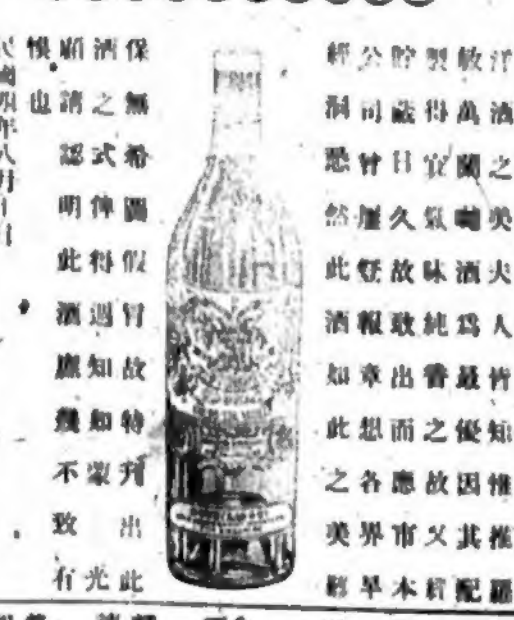 洋酒之美夫人皆知惟推羅
敏萬蘭囒酒為最優因其配
製得宜氣味純之故又經
貯藏日久故敢出而應市本
公司曾屢登報章想各界早
經洞悉然此酒如此之美經
保無希圖假冒故特刊出此
酒之式俾得週知如蒙光
顧請認明此酒庶幾不致有
悞也
民國四年八月日